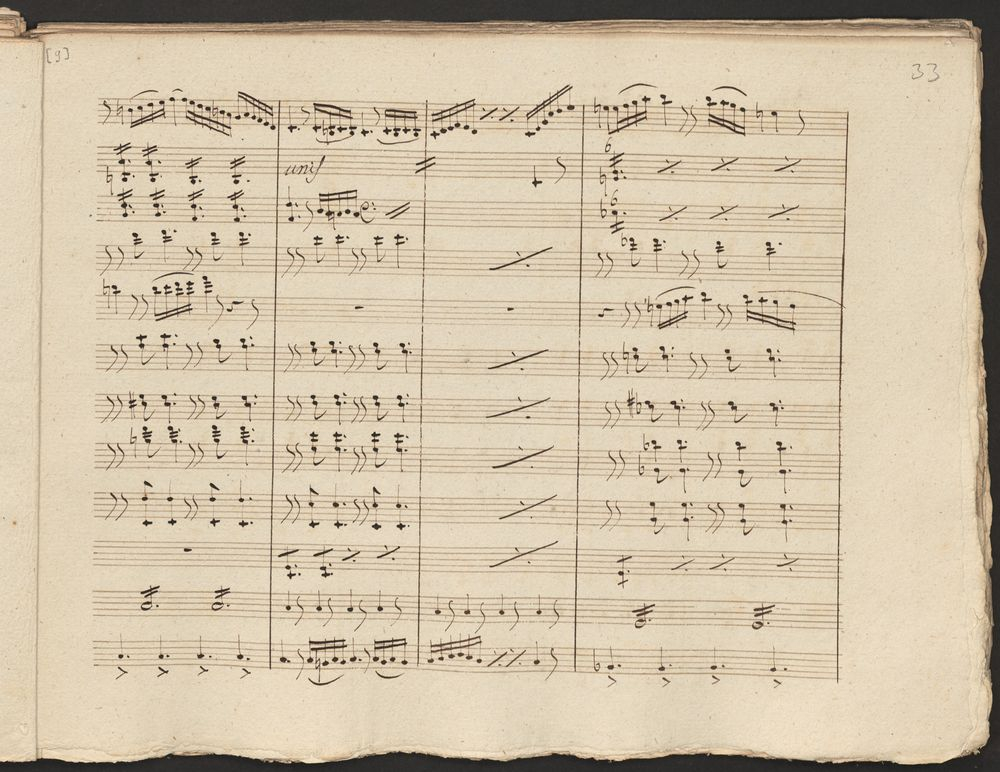 [9]
33
unis
6
6